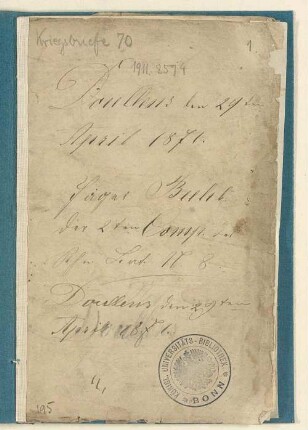 Kriegsbriefe 70
1.
1911. 2574
Doullens den 29ten
April 1871.
Jäger
der 2ten Comp
Doullens den 29ten
April 1871.
4,
195
KÖNIGL. UNIVERSITÄTS-BIBLIOTHEK
BONN